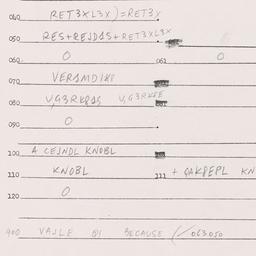 040 RET3XL3X)=RET3X
050 RES+REJDAS+RET3XL3X
060 0 061 0
070 VERAMDIXE
080 V,G3RKRAS V,G3RKRE
090 0
100 A CEJNDL KNOBL
110 KNOBL 111 + OAKPEPL KN
120 0
900 VAJLE 01 BECAUSE (/063.050